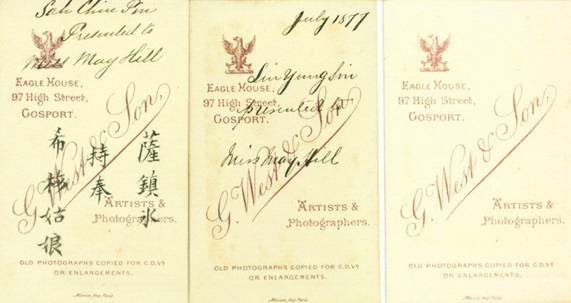 Sah Chin Pin
Presented to
Miss May Hill
EAGLE HOUSE,
97 High Street,
GOSPORT.
G. West & Son,
薩鎮冰
持奉
希梅姑娘
ARTISTS &
Photographers.
OLD PHOTOGRAPHS COPIED FOR C.D.Vs
OR ENLARGEMENTS.
July 1877
EAGLE HOUSE,
Lin Yung Sin
97 High Street,
presented to
GOSPORT.
G. West & Son
Miss May Hill
ARTISTS &
Photographers.
OLD PHOTOGRAPHS COPIED FOR C.D.Vs
OR ENLARGEMENTS.
EAGLE HOUSE,
97 High Street,
GOSPORT.
G. West & Son,
ARTISTS &
Photographers.
OLD PHOTOGRAPHS COPIED FOR C.D.Vs
OR ENLARGEMENTS.